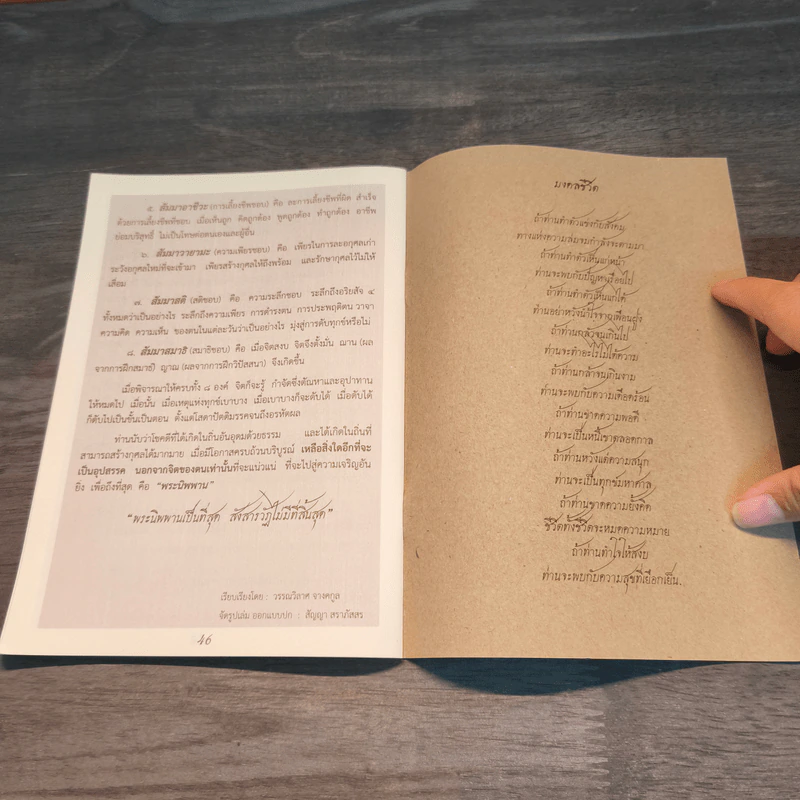 ๕. สัมมาอาชีวะ (การเลี้ยงชีพชอบ) คือ ละการเลี้ยงชีพที่ผิด สำเร็จ
ด้วยการเลี้ยงชีพที่ชอบ เมื่อเห็นถูก คิดถูกต้อง พูดถูกต้อง ทำถูกต้อง อาชีพ
ย่อมบริสุทธิ์ ไม่เป็นโทษต่อตนเองและผู้อื่น
๖. สัมมาวายามะ (ความเพียรชอบ) คือ เพียรในการละอกุศลเก่า
ระวังอกุศลใหม่ที่จะเข้ามา เพียรสร้างกุศลให้ถึงพร้อม และรักษากุศลไว้ไม่ให้
เสื่อม
๗. สัมมาสติ (สติชอบ) คือ ความระลึกชอบ ระลึกถึงอริยสัจ ๔
ทั้งหมดว่าเป็นอย่างไร ระลึกถึงความเพียร การดำรงตน การประพฤติตน วาจา
ความคิด ความเห็น ของตนในแต่ละวันว่าเป็นอย่างไร มุ่งสู่การดับทุกข์หรือไม่
๘. สัมมาสมาธิ (สมาธิชอบ) คือ เมื่อจิตสงบ จิตจึงตั้งมั่น ฌาน (ผล
จากการฝึกสมาธิ) ญาณ (ผลจากการฝึกวิปัสสนา) จึงเกิดขึ้น
เมื่อพิจารณาให้ครบทั้ง ๘ องค์ จิตก็จะรู้ กำจัดซึ่งตัณหาและอุปาทาน
ให้หมดไป เมื่อนั้น เมื่อเหตุแห่งทุกข์เบาบาง เมื่อเบาบางก็จะดับได้ เมื่อดับได้
ก็ดับไปเป็นขั้นเป็นตอน ตั้งแต่โสดาปัตติมรรคจนถึงอรหัตผล
ท่านนับว่าโชคดีที่ได้เกิดในถิ่นอันอุดมด้วยธรรม และได้เกิดในถิ่นที่
สามารถสร้างกุศลได้มากมาย เมื่อมีโอกาสครบถ้วนบริบูรณ์ เหลือสิ่งใดอีกที่จะ
เป็นอุปสรรค นอกจากจิตของตนเท่านั้นที่จะแน่วแน่ ที่จะไปสู่ความเจริญอัน
ยิ่ง เพื่อถึงที่สุด คือ "พระนิพพาน"
"พระนิพพานเป็นที่สุด สังสารวัฏไม่มีที่สิ้นสุด"
เรียบเรียงโดย : วรรณวิลาศ จางตกูล
จัดรูปเล่ม ออกแบบปก : สัญญา สราภัสสร
46
มงคลชีวิต
ถ้าท่านทำตัวแข่งกับสังคม
ทางแห่งความล่มจมกำลังจะตามมา
ถ้าท่านทำตัวเห็นแก่หน้า
ท่านจะพบกับปัญหาเรื่อยไป
ถ้าท่านทำตัวเห็นแก่ได้
ท่านอย่าหวังน้ำใจจากเพื่อนฝูง
ถ้าท่านกลัวจนเกินไป
ท่านจะทำอะไรไม่ได้ความ
ถ้าท่านกล้าจนเกินงาม
ท่านจะพบกับความเดือดร้อน
ถ้าท่านขาดความพอดี
ท่านจะเป็นหนี้เขาตลอดกาล
ถ้าท่านหวังแต่ความสนุก
ท่านจะเป็นทุกข์มหาศาล
ถ้าท่านขาดความยั้งคิด
ชีวิตทั้งชีวิตจะหมดความหมาย
ถ้าท่านทำใจให้สงบ
ท่านจะพบกับความสุขที่เยือกเย็น.